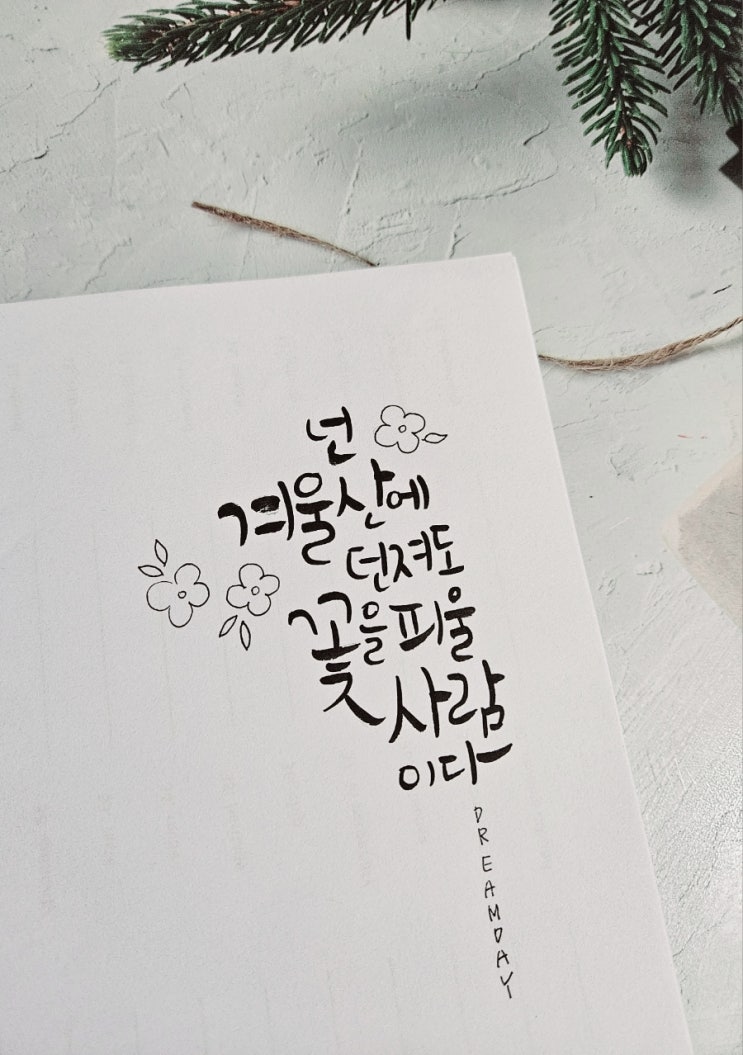 넌
겨울산에
던져도
꽃을 피울
사람
이다
DREAMDAY